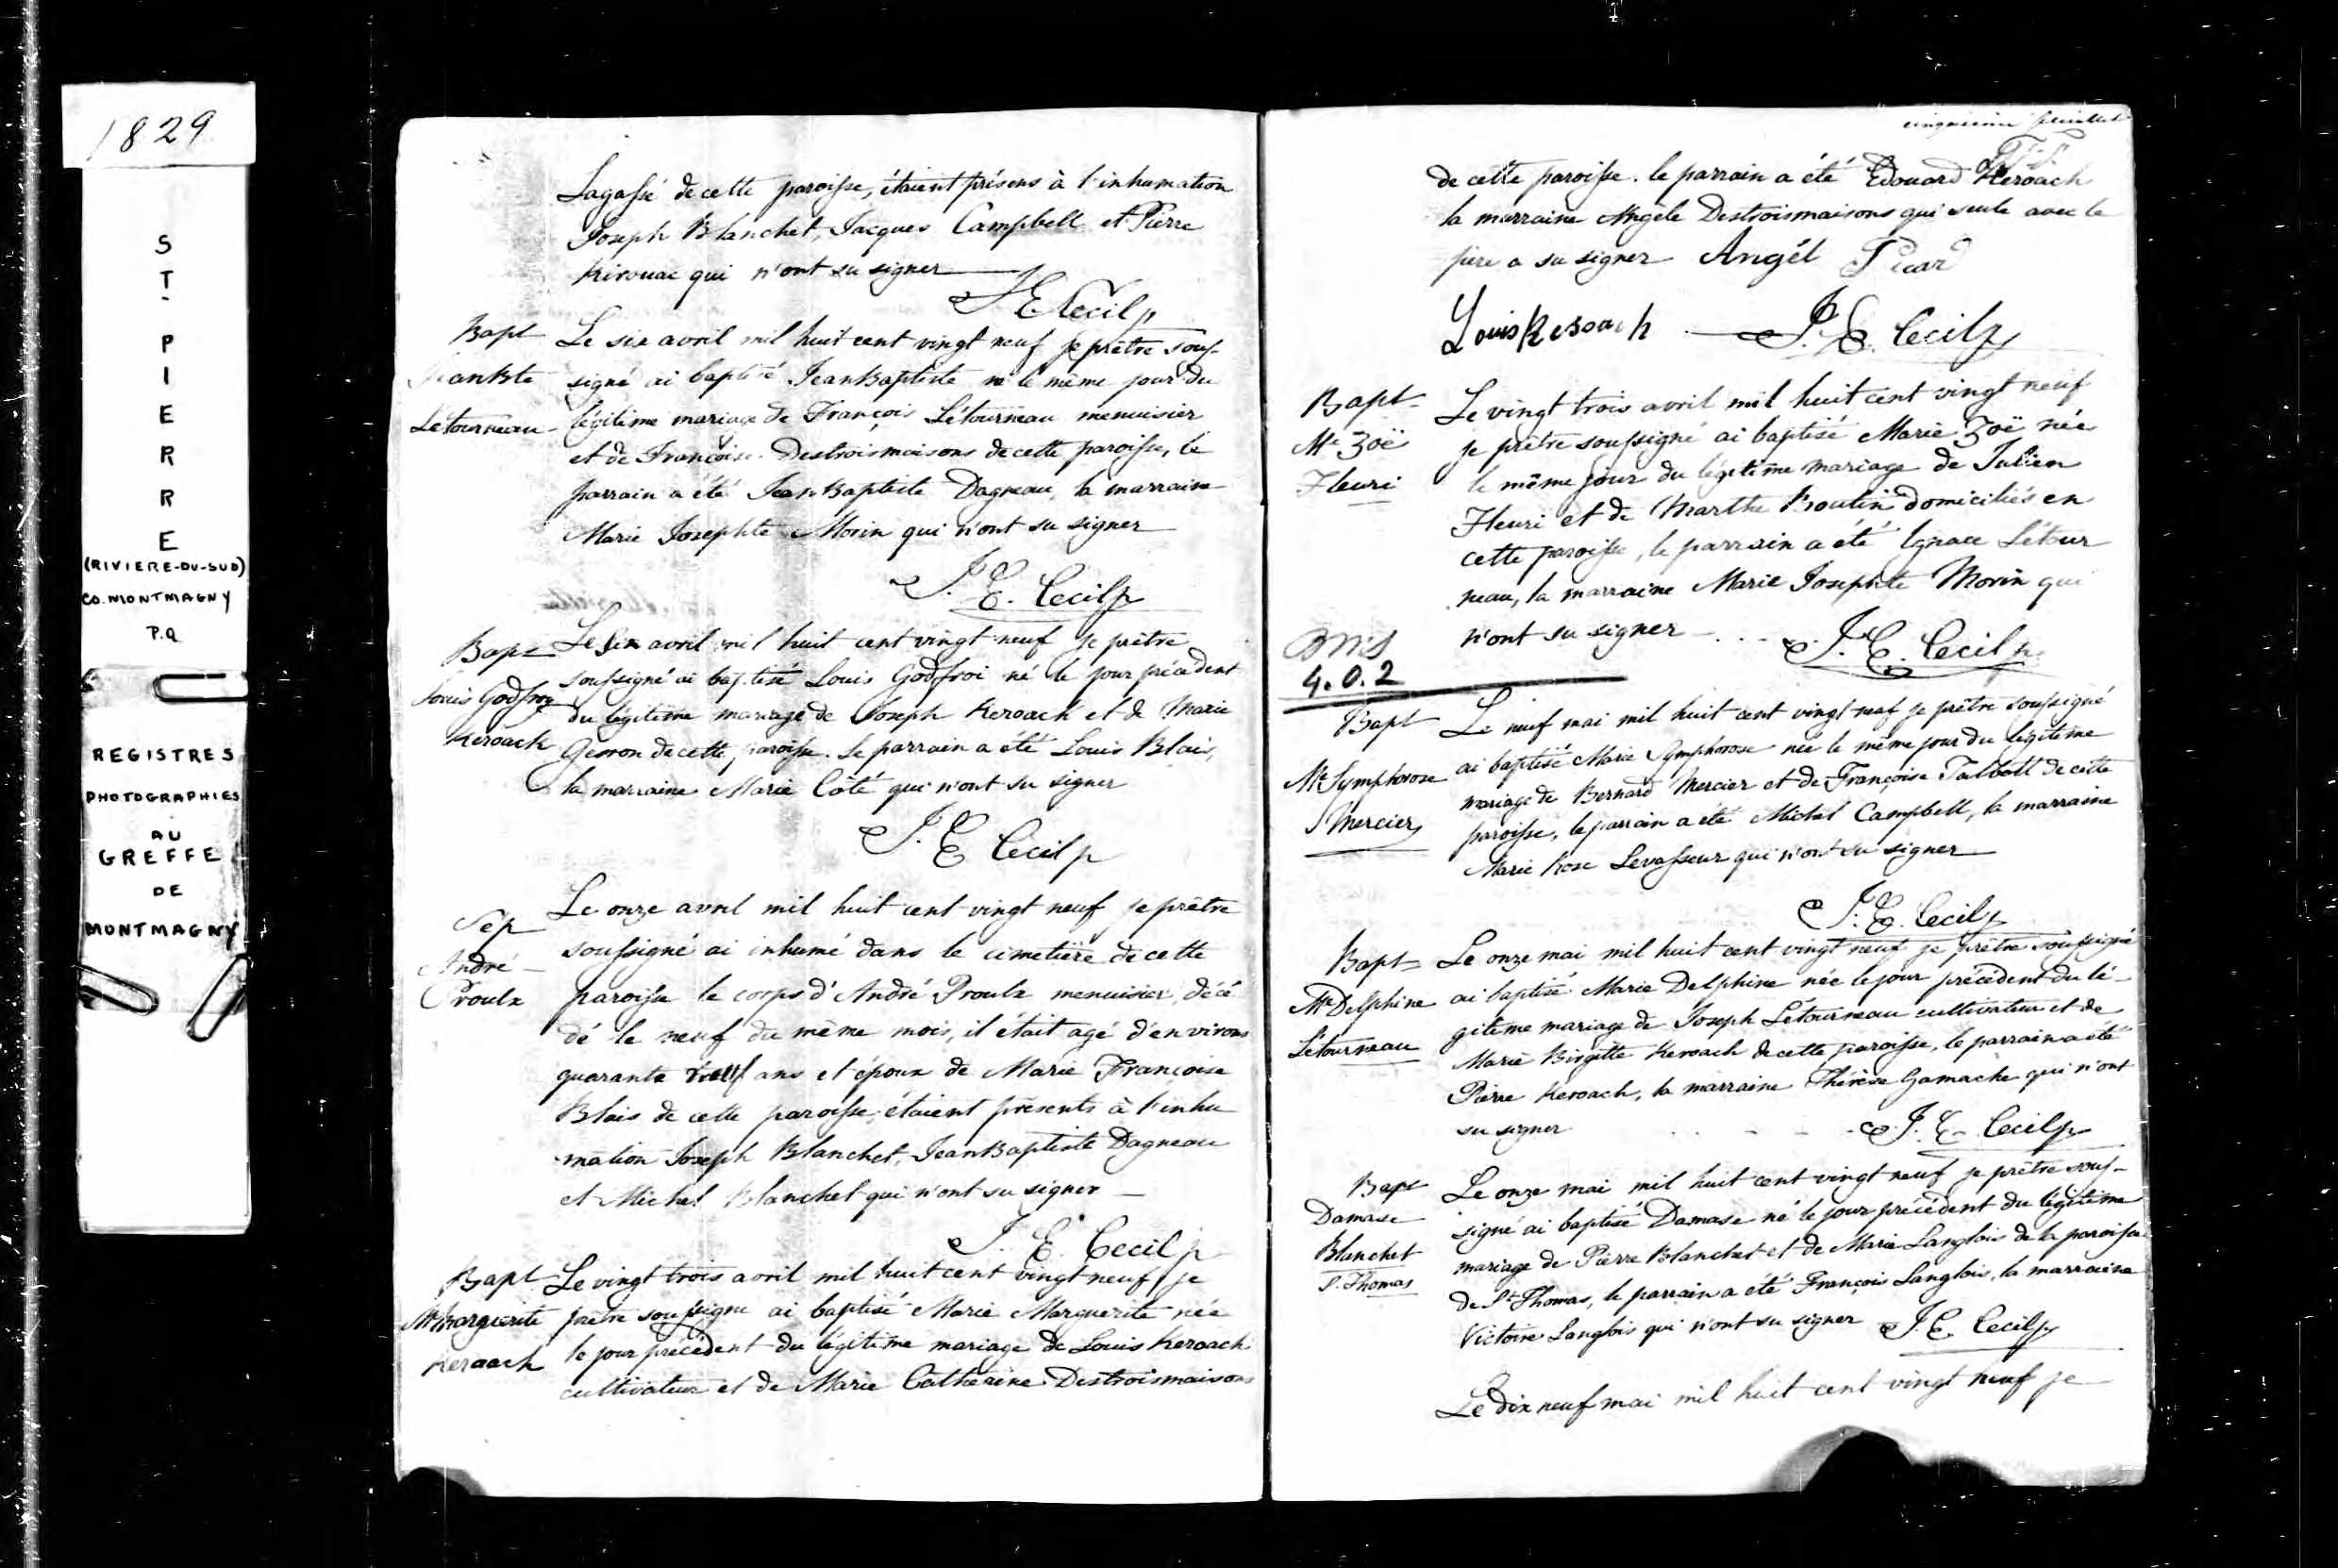 1829
ST
PIERRE
(RIVIERE-DU-SUD)
CO. MONTMAGNY
P.Q
REGISTRES
PHOTOGRAPHIES
AU
GREFFE
DE
MONTMAGNY
Lagassé de cette paroisse, étaient présens à l'inhumation
Joseph Blanchet, Jacques Campbell et Pierre
Kirouac qui n'ont su signer
J. E. Cecil p
Bapt
Jean Bte
Létourneau
Le six avril mil huit cent vingt neuf je prêtre sous-
signé ai baptisé Jean Baptiste né le même jour du
légitime mariage de François Létourneau menuisier
et de Françoise Destroismaisons de cette paroisse, le
parrain a été Jean Baptiste Dagneau, la marraine
Marie Josephte Morin qui n'ont su signer
J. E. Cecil p
Bap=
Louis Godfroy
Keroack
Le six avril mil huit cent vingt neuf je prêtre
soussigné ai baptisé Louis Godfroi né le jour précédent
du légitime mariage de Joseph Keroack et de Marie
Gesron de cette paroisse. Le parrain a été Louis Blais,
la marraine Marie Côté qui n'ont su signer
J. E. Cecil p
Sep
André
Proulx
Le onze avril mil huit cent vingt neuf je prêtre
soussigné ai inhumé dans le cimetière de cette
paroisse le corps d'André Proulx menuisier, décé
dé le neuf du même mois, il était agé d'environs
quarante neuf ans et époux de Marie Françoise
Blais de cette paroisse; étaient présents à l'inhu
mation Joseph Blanchet, Jean Baptiste Dagneau
et Michel Blanchet qui n'ont su signer
J. E. Cecil p
Bapt
Me Marguerite
Keroach
Le vingt trois avril mil huit cent vingt neuf je
prêtre soussigné ai baptisé Marie Marguerite née
le jour précédent du légitime mariage de Louis Keroach
cultivateur et de Marie Catherine Destroismaisons
cinquième feuillet
de cette paroisse. le parrain a été Edouard Keroach
la marraine Angèle Destroismaisons qui seule avec le
père a su signer Angél Picard
Louis Keroach J. E. Cecil p
Bapt
Me Zoë
Fleuri
Le vingt trois avril mil huit cent vingt neuf
je prêtre soussigné ai baptisé Marie Zoë née
le même jour du légitime mariage de Julien
Fleuri et de Marthe Boutin domiciliés en
cette paroisse, le parrain a été Ignace Létour
neau, la marraine Marie Josephte Morin qui
n'ont su signer J. E. Cecil p
4.0.2
Bapt
Me Symphorose
Mercier
Le neuf mai mil huit cent vingt neuf je prêtre soussigné
ai baptisé Marie Symphorose née le même jour du légitime
mariage de Bernard Mercier et de Françoise Talbott de cette
paroisse, le parrain a été Michel Campbell, la marraine
Marie Rose Levasseur qui n'ont su signer
J. E. Cecil p
Bapt=
Me Delphine
Létourneau
Le onze mai mil huit cent vingt neuf je prêtre soussigné
ai baptisé Marie Delphine née le jour précédent du lé-
gitime mariage de Joseph Létourneau cultivateur et de
Marie Birgitte Keroach de cette paroisse, le parrain a été
Pierre Keroach, la marraine Thérèse Gamache qui n'ont
su signer J. E. Cecil p
Bapt
Damase
Blanchet
St. Thomas
Le onze mai mil huit cent vingt neuf je prêtre sous-
signé ai baptisé Damase né le jour précédent du légitime
mariage de Pierre Blanchet et de Marie Langlois de la paroisse
de St. Thomas, le parrain a été François Langlois, la marraine
Victoire Langlois qui n'ont su signer J. E. Cecil p
Le dix neuf mai mil huit cent vingt neuf je